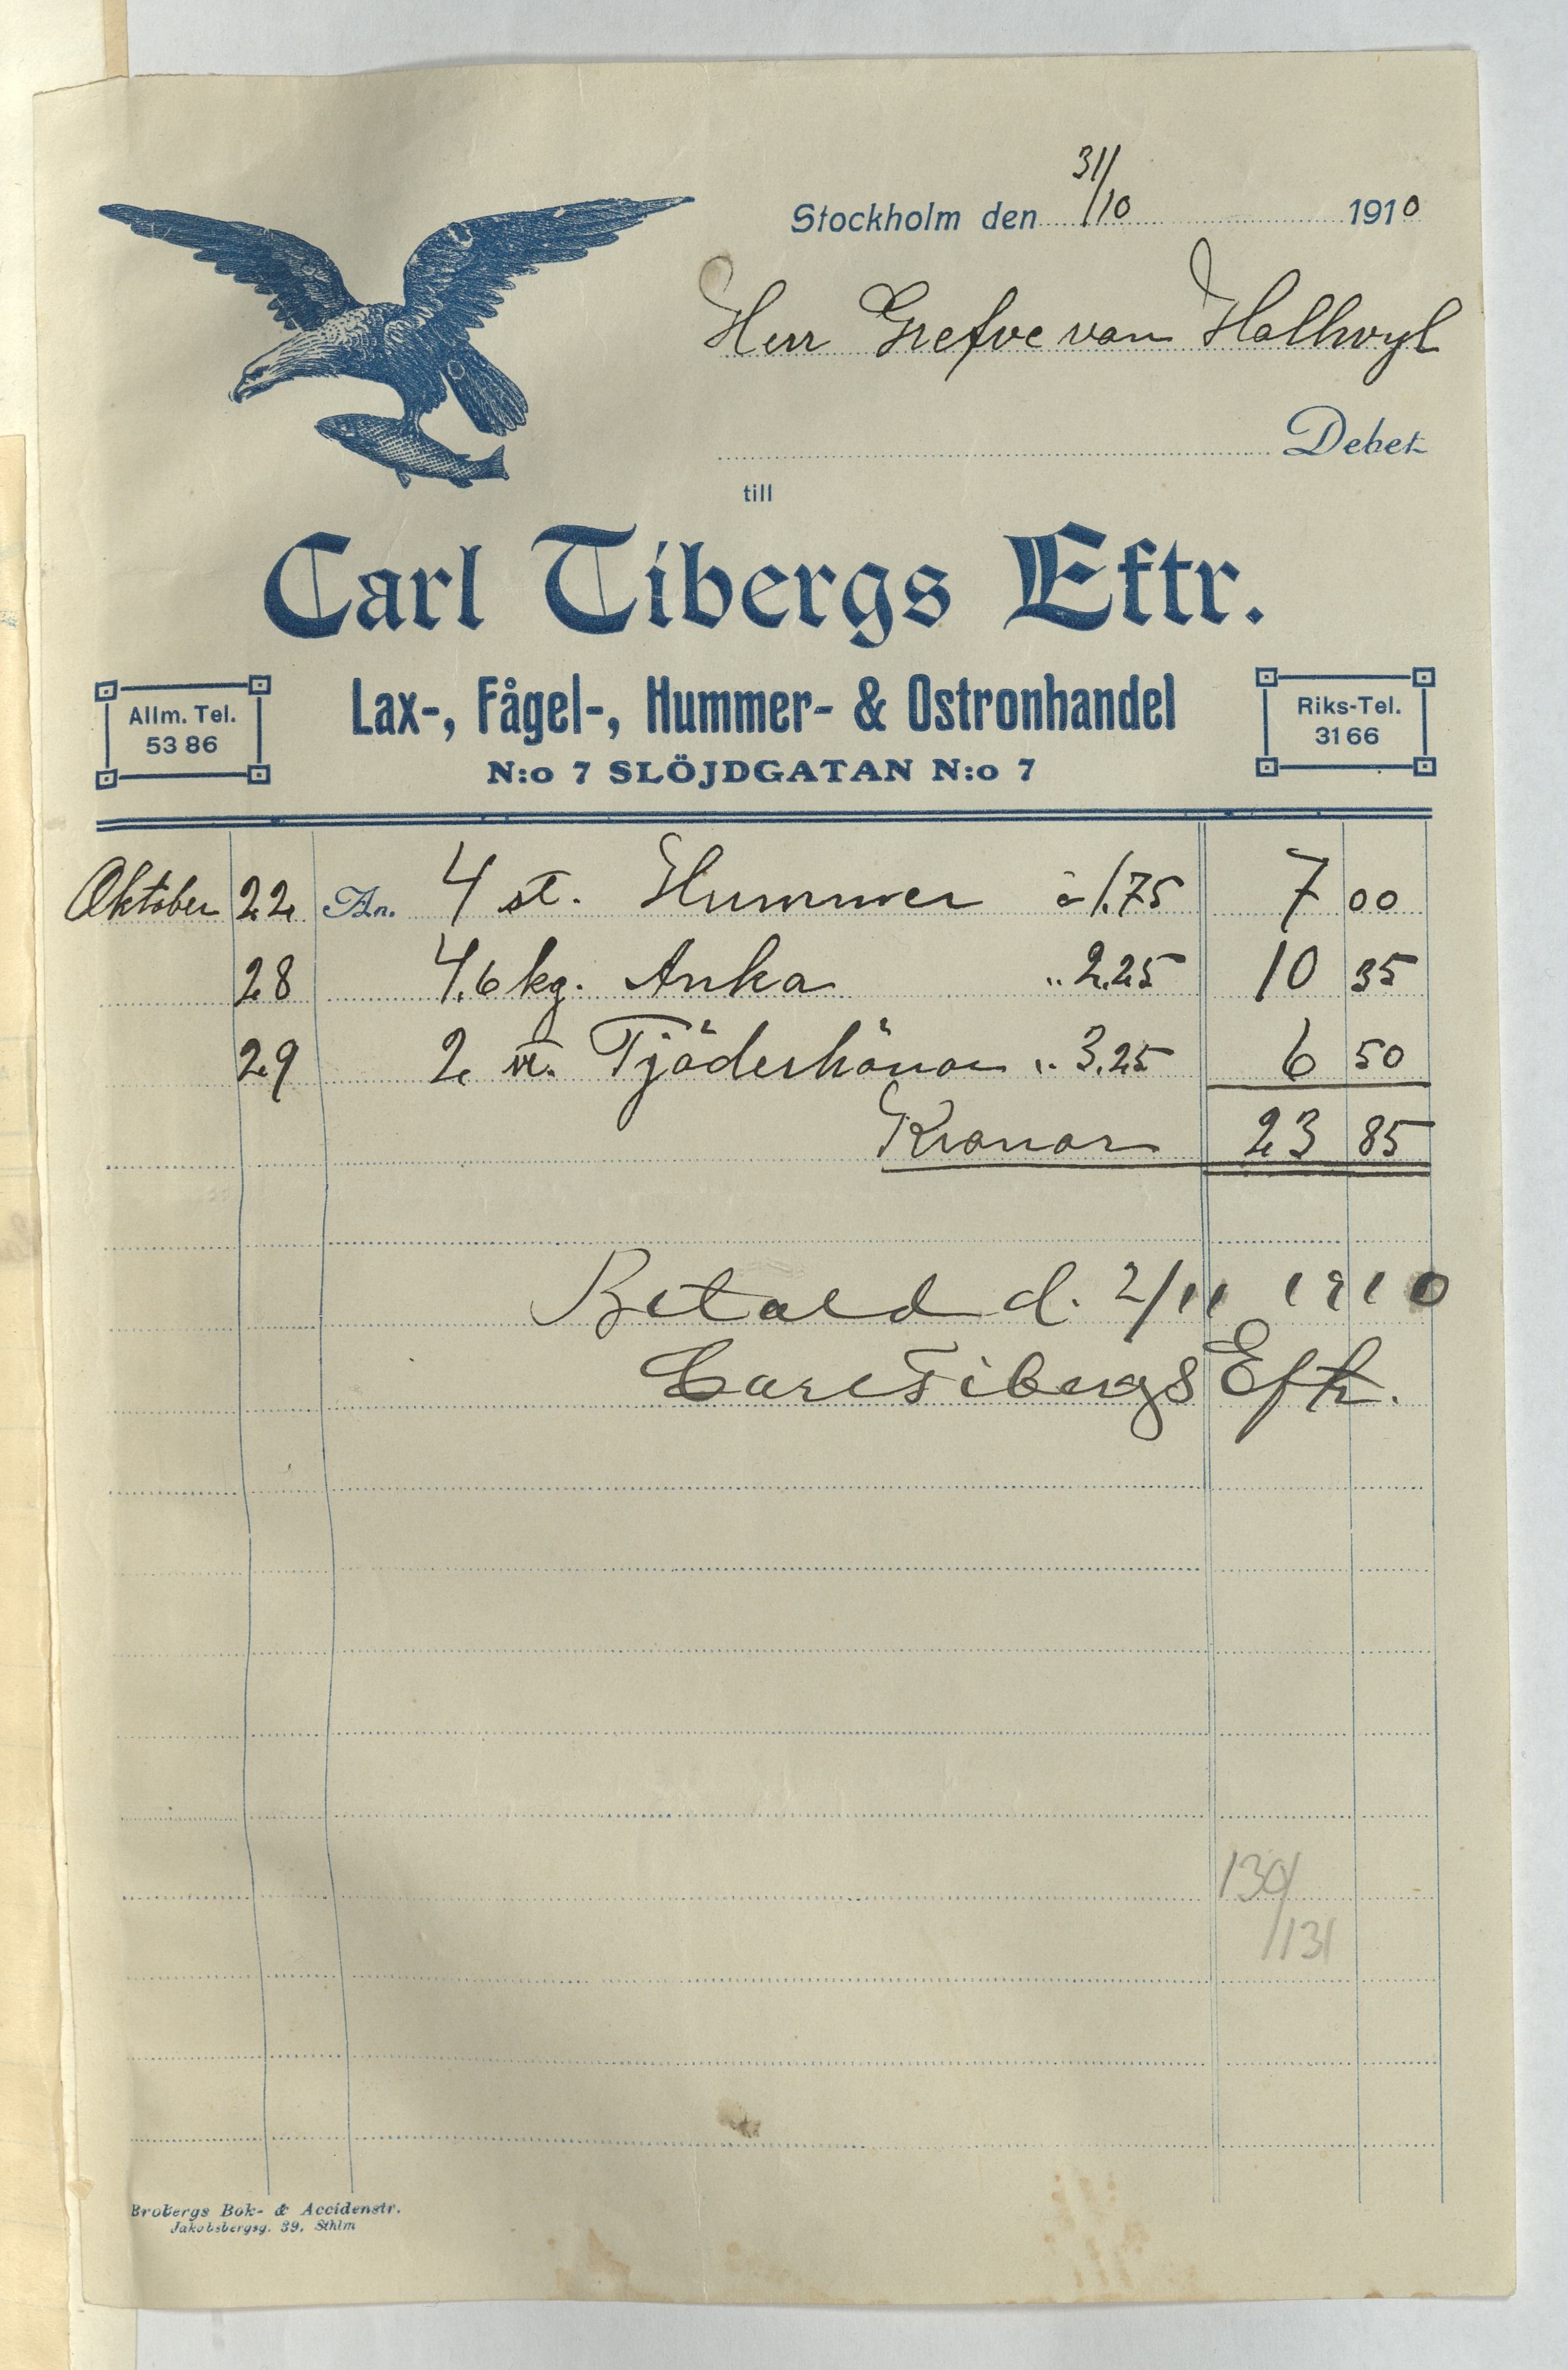 Stockholm den 31/10 1910
Herr Grefve van Hallwyl
Debet
till
Carl Tibergs Eftr.
Lax-, Fågel-, Hummer- & Ostronhandel
Allm. Tel.
53 86
Riks-Tel.
31 66
N:o 7 SLÖJDGATAN N:o 7
Oktober 22 An. 4 st. Hummer à 1.75 7 00
28 4,6 kg. Anka " 2.25 10 35
29 2 st. Tjäderhönor " 3.25 6 50
Kronor 23 85
Betald d. 2/11 1910
Carl Tibergs Eftr.
130/
/131
Brobergs Bok- & Accidenstr.
Jakobsbergsg. 39, Sthlm